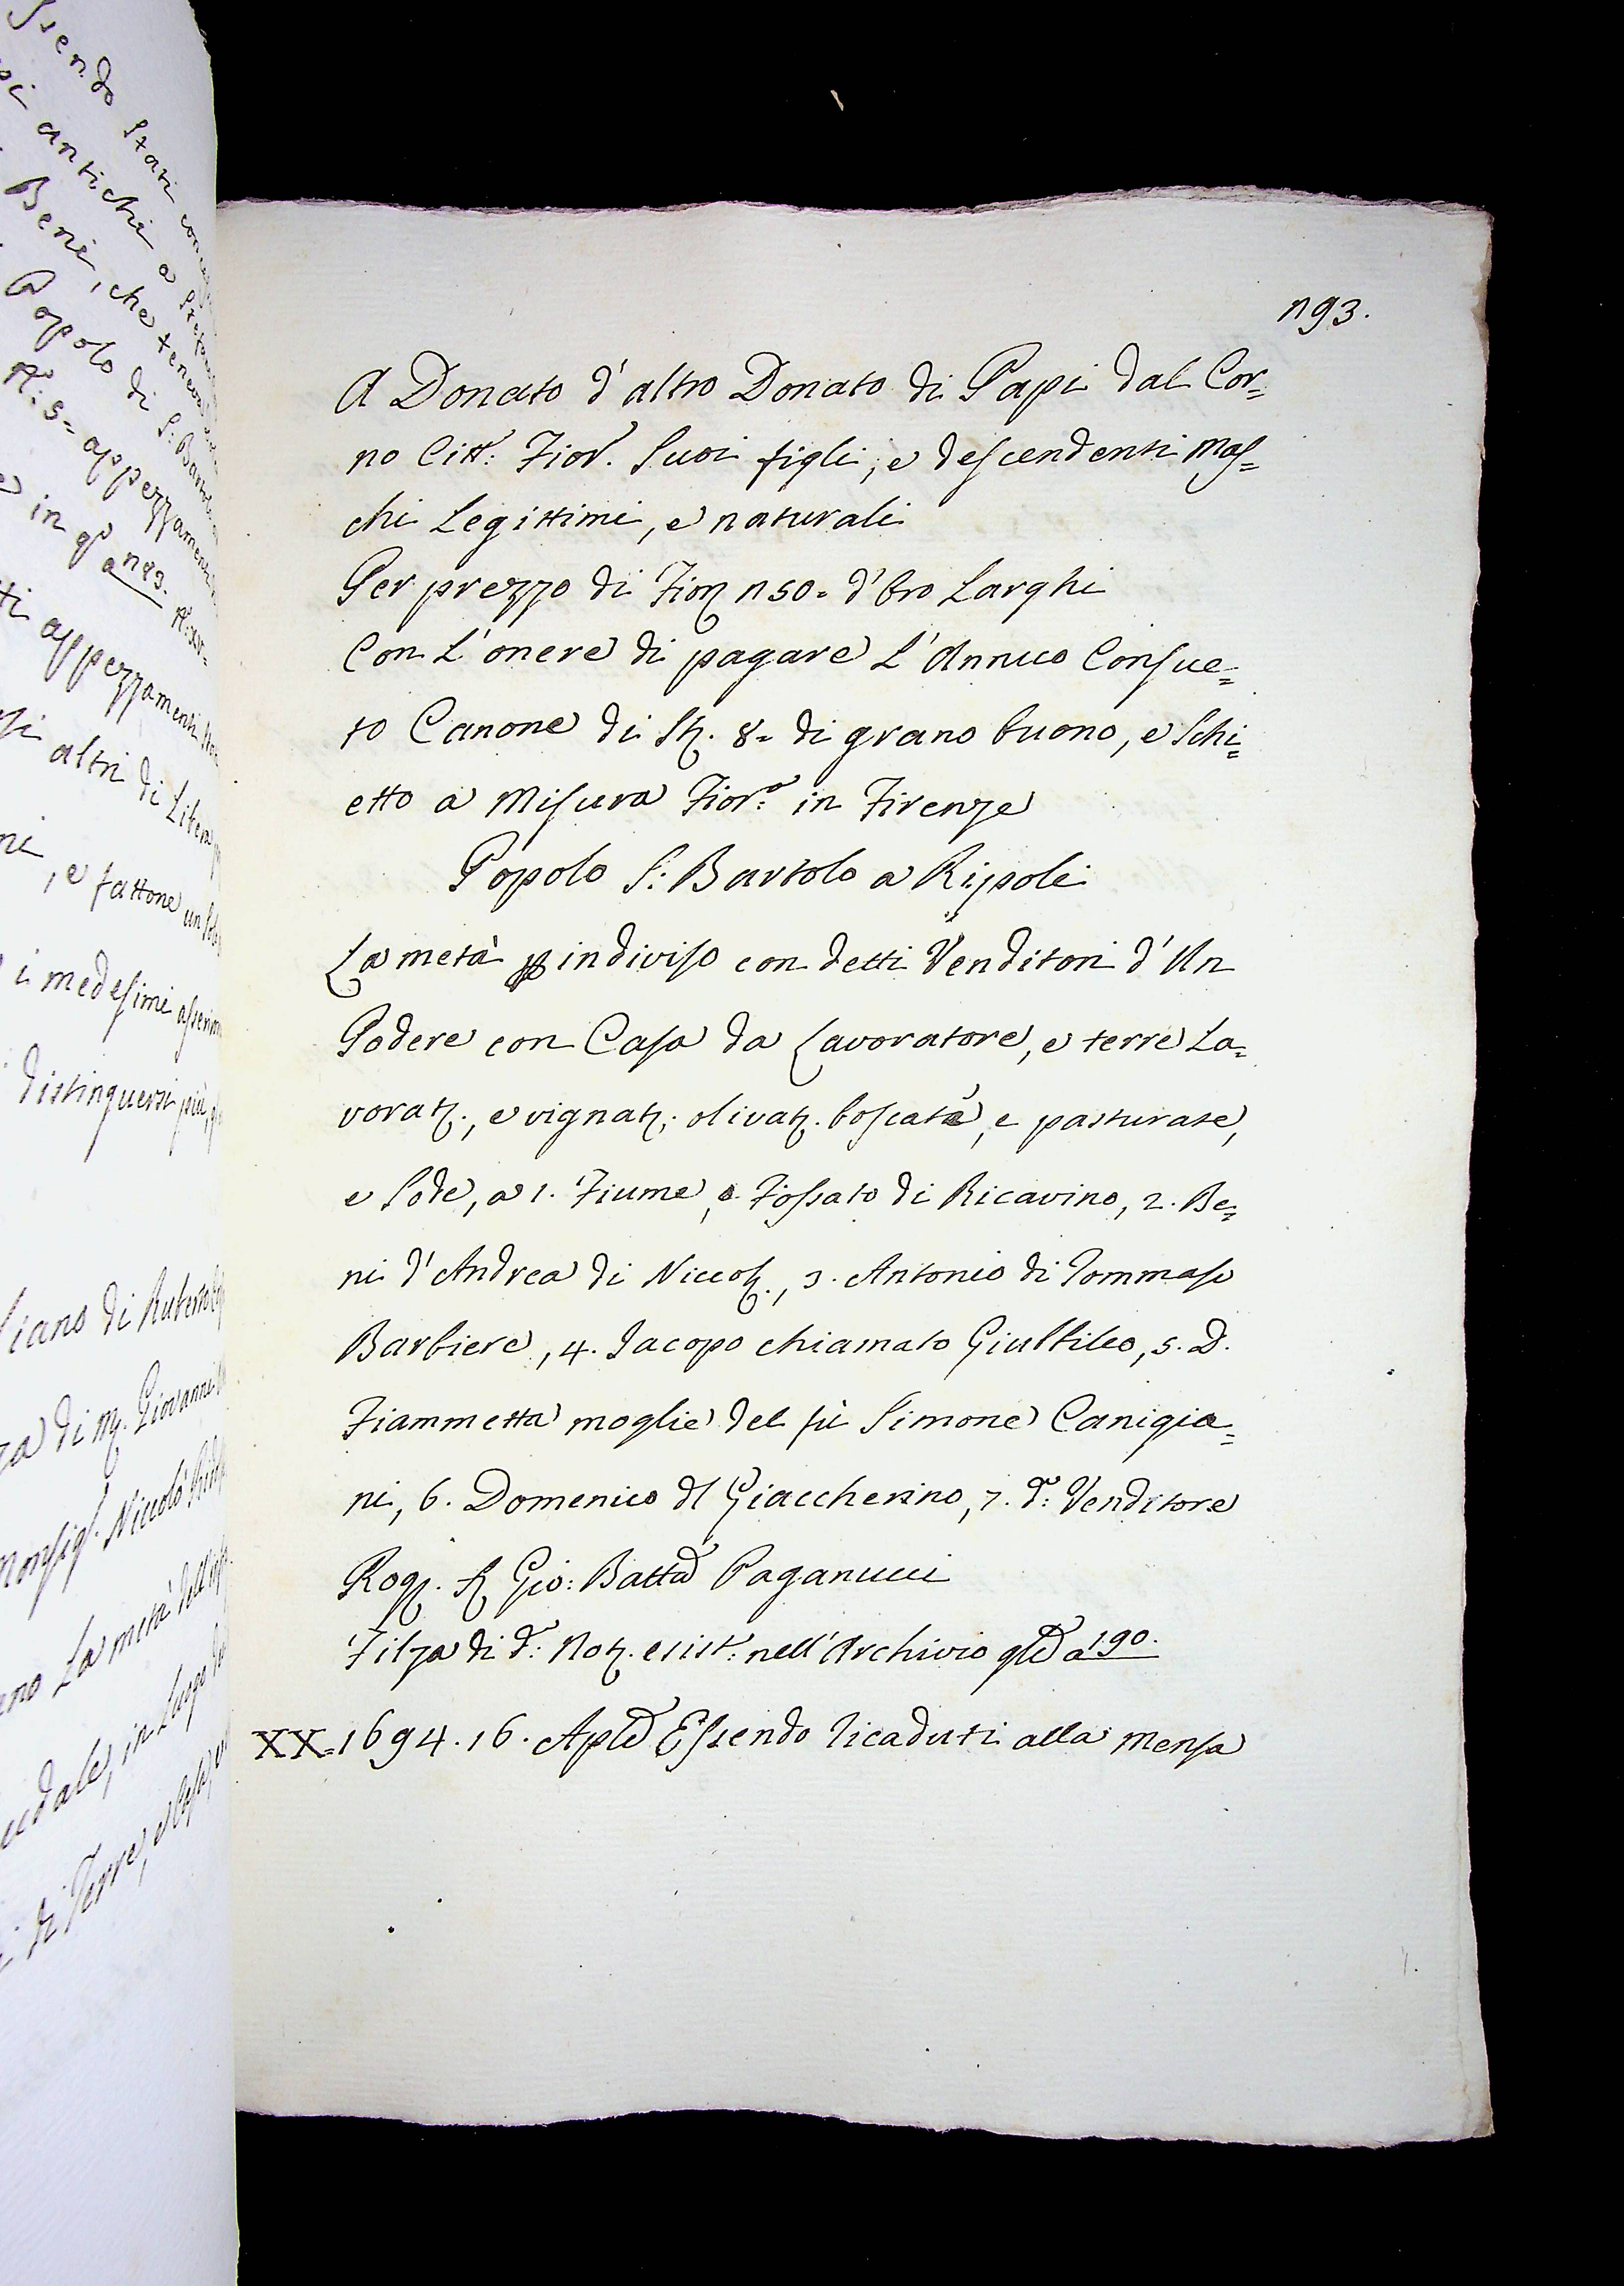 193.
A Donato d'altro Donato di Papi dal Cor=
no Citt: Fior. Suoi figli, e descendenti Mas=
chi Legittimi, e naturali
Per prezzo di Fior 150= d'Oro Larghi
Con L'onere di pagare L'Annuo Consue=
to Canone di St. 8= di grano buono, e Schi=
etto a Misura Fior:a in Firenze
Popolo S: Bartolo a Ripoli
La metà p indiviso con detti Venditori d'Un
Podere con Casa da Lavoratore, e terre La=
vorat., e vignat., olivat. boscate, e pasturate,
e Sode, a 1. Fiume, o Fossato di Ricavino, 2. Be=
ni d'Andrea di Niccol., 3. Antonio di Tommaso
Barbiere, 4. Jacopo chiamato Giulbileo, 5. D.
Fiammetta moglie del fù Simone Canigia=
ni, 6. Domenico dl Giaccherino, 7. d: Venditore
Rog. Gio: Batta Paganucci
Filza di d: Not. esist: nell'Archivio qld a 190.
XX=1694. 16. Aple Essendo ricaduti alla Mensa
antichi a
Beni, che teneva
Popolo di S: Bartolo
appezzamenti
in qo a 189.
appezzamenti
altri di Libera
, e fattone un solo
i medesimi
distinguersi più,
di Ruberto
di M. Giovanni
Monsig. Niccolò
La metà dell'
in Luogo
di Terre, e Casa,